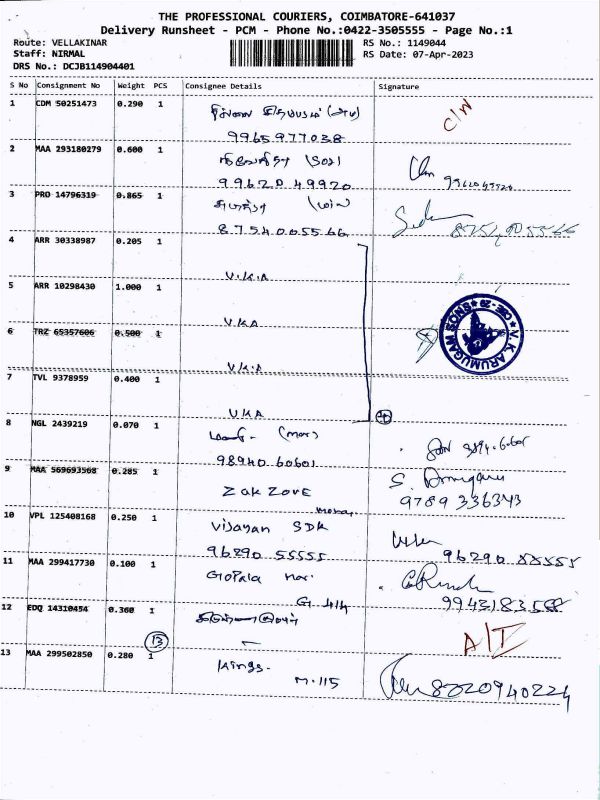 THE PROFESSIONAL COURIERS, COIMBATORE-641037
Delivery Runsheet - PCM - Phone No.:0422-3505555 - Page No.:1
Route: VELLAKINAR RS No.: 1149044
Staff: NIRMAL RS Date: 07-Apr-2023
DRS No.: DCJB114904401
S No Consignment No Weight PCS Consignee Details Signature
1 CDM 50251473 0.290 1
C/N
9965977038
2 MAA 293180279 0.600 1
99620 49920 9962049920
3 PRO 14796319 0.865 1
8754005566 8754005566
4 ARR 30338987 0.205 1
V.K.A
5 ARR 10298430 1.000 1
VKA
V.K. ARUMUGAM SONS CBE-29
6 TRZ 65357606 0.500 1
V.K.A
7 TVL 9378959 0.400 1
VKA
8 NGL 2439219 0.070 1
98940 60601
9 MAA 569693568 0.285 1
ZAK ZOVE S.
9789336343
10 VPL 125408168 0.250 1
Vijayan SDK
96290 55555 96290 55555
11 MAA 299417730 0.100 1
Gopala nar.
G 414
12 EDQ 14310454 0.360 1
A/I
13
13 MAA 299502850 0.280 1
Kings.
M.115 8220940224